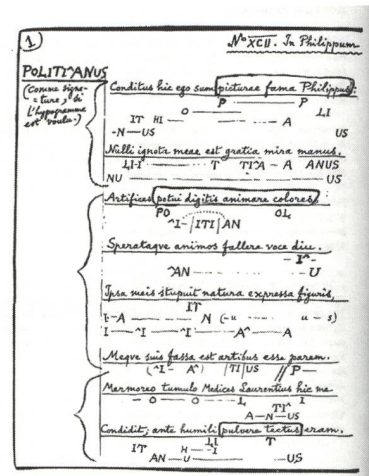 1
Nº XCII. In Philippum
POLITI^ANUS
(Comme signa-
ture, si
l'hypogramme
est voulu.)
Conditus hic ego sum picturae fama Philippus:
P P
O LI
IT HI A
-N-US US
Nulli ignota meae est gratia mira manus.
LI-I T TI^A - A ANUS
NU US
Artifices potui digitis animare colores,
PO OL
^I- /ITI/ AN
Sperataque animos fallere voce diu.
- I^-
^AN U
Ipsa meis stupuit natura expressa figuris,
IT
I-A N (-u u - s)
I ^I ^I A^ A
Meque suis fassa est artibus esse parem.
(^I- A^) /TI/US // P-
Marmoreo tumulo Medices Laurentius hic me
- O - O - L I
TI^
A-N-US
Condidit; ante humili pulvere tectus eram.
LI T
IT H I
AN-U US